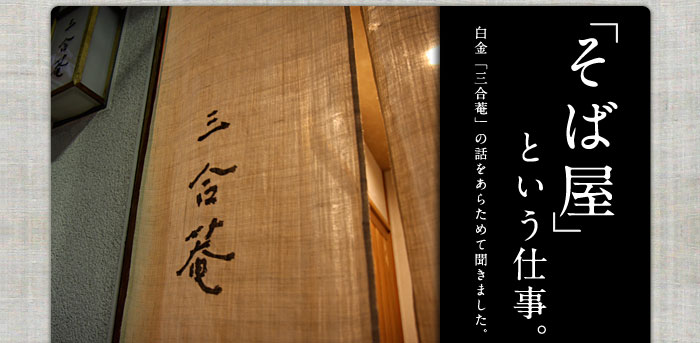 三合菴
三合菴
「そば屋」
という仕事。
白金「三合菴」の話をあらためて聞きました。